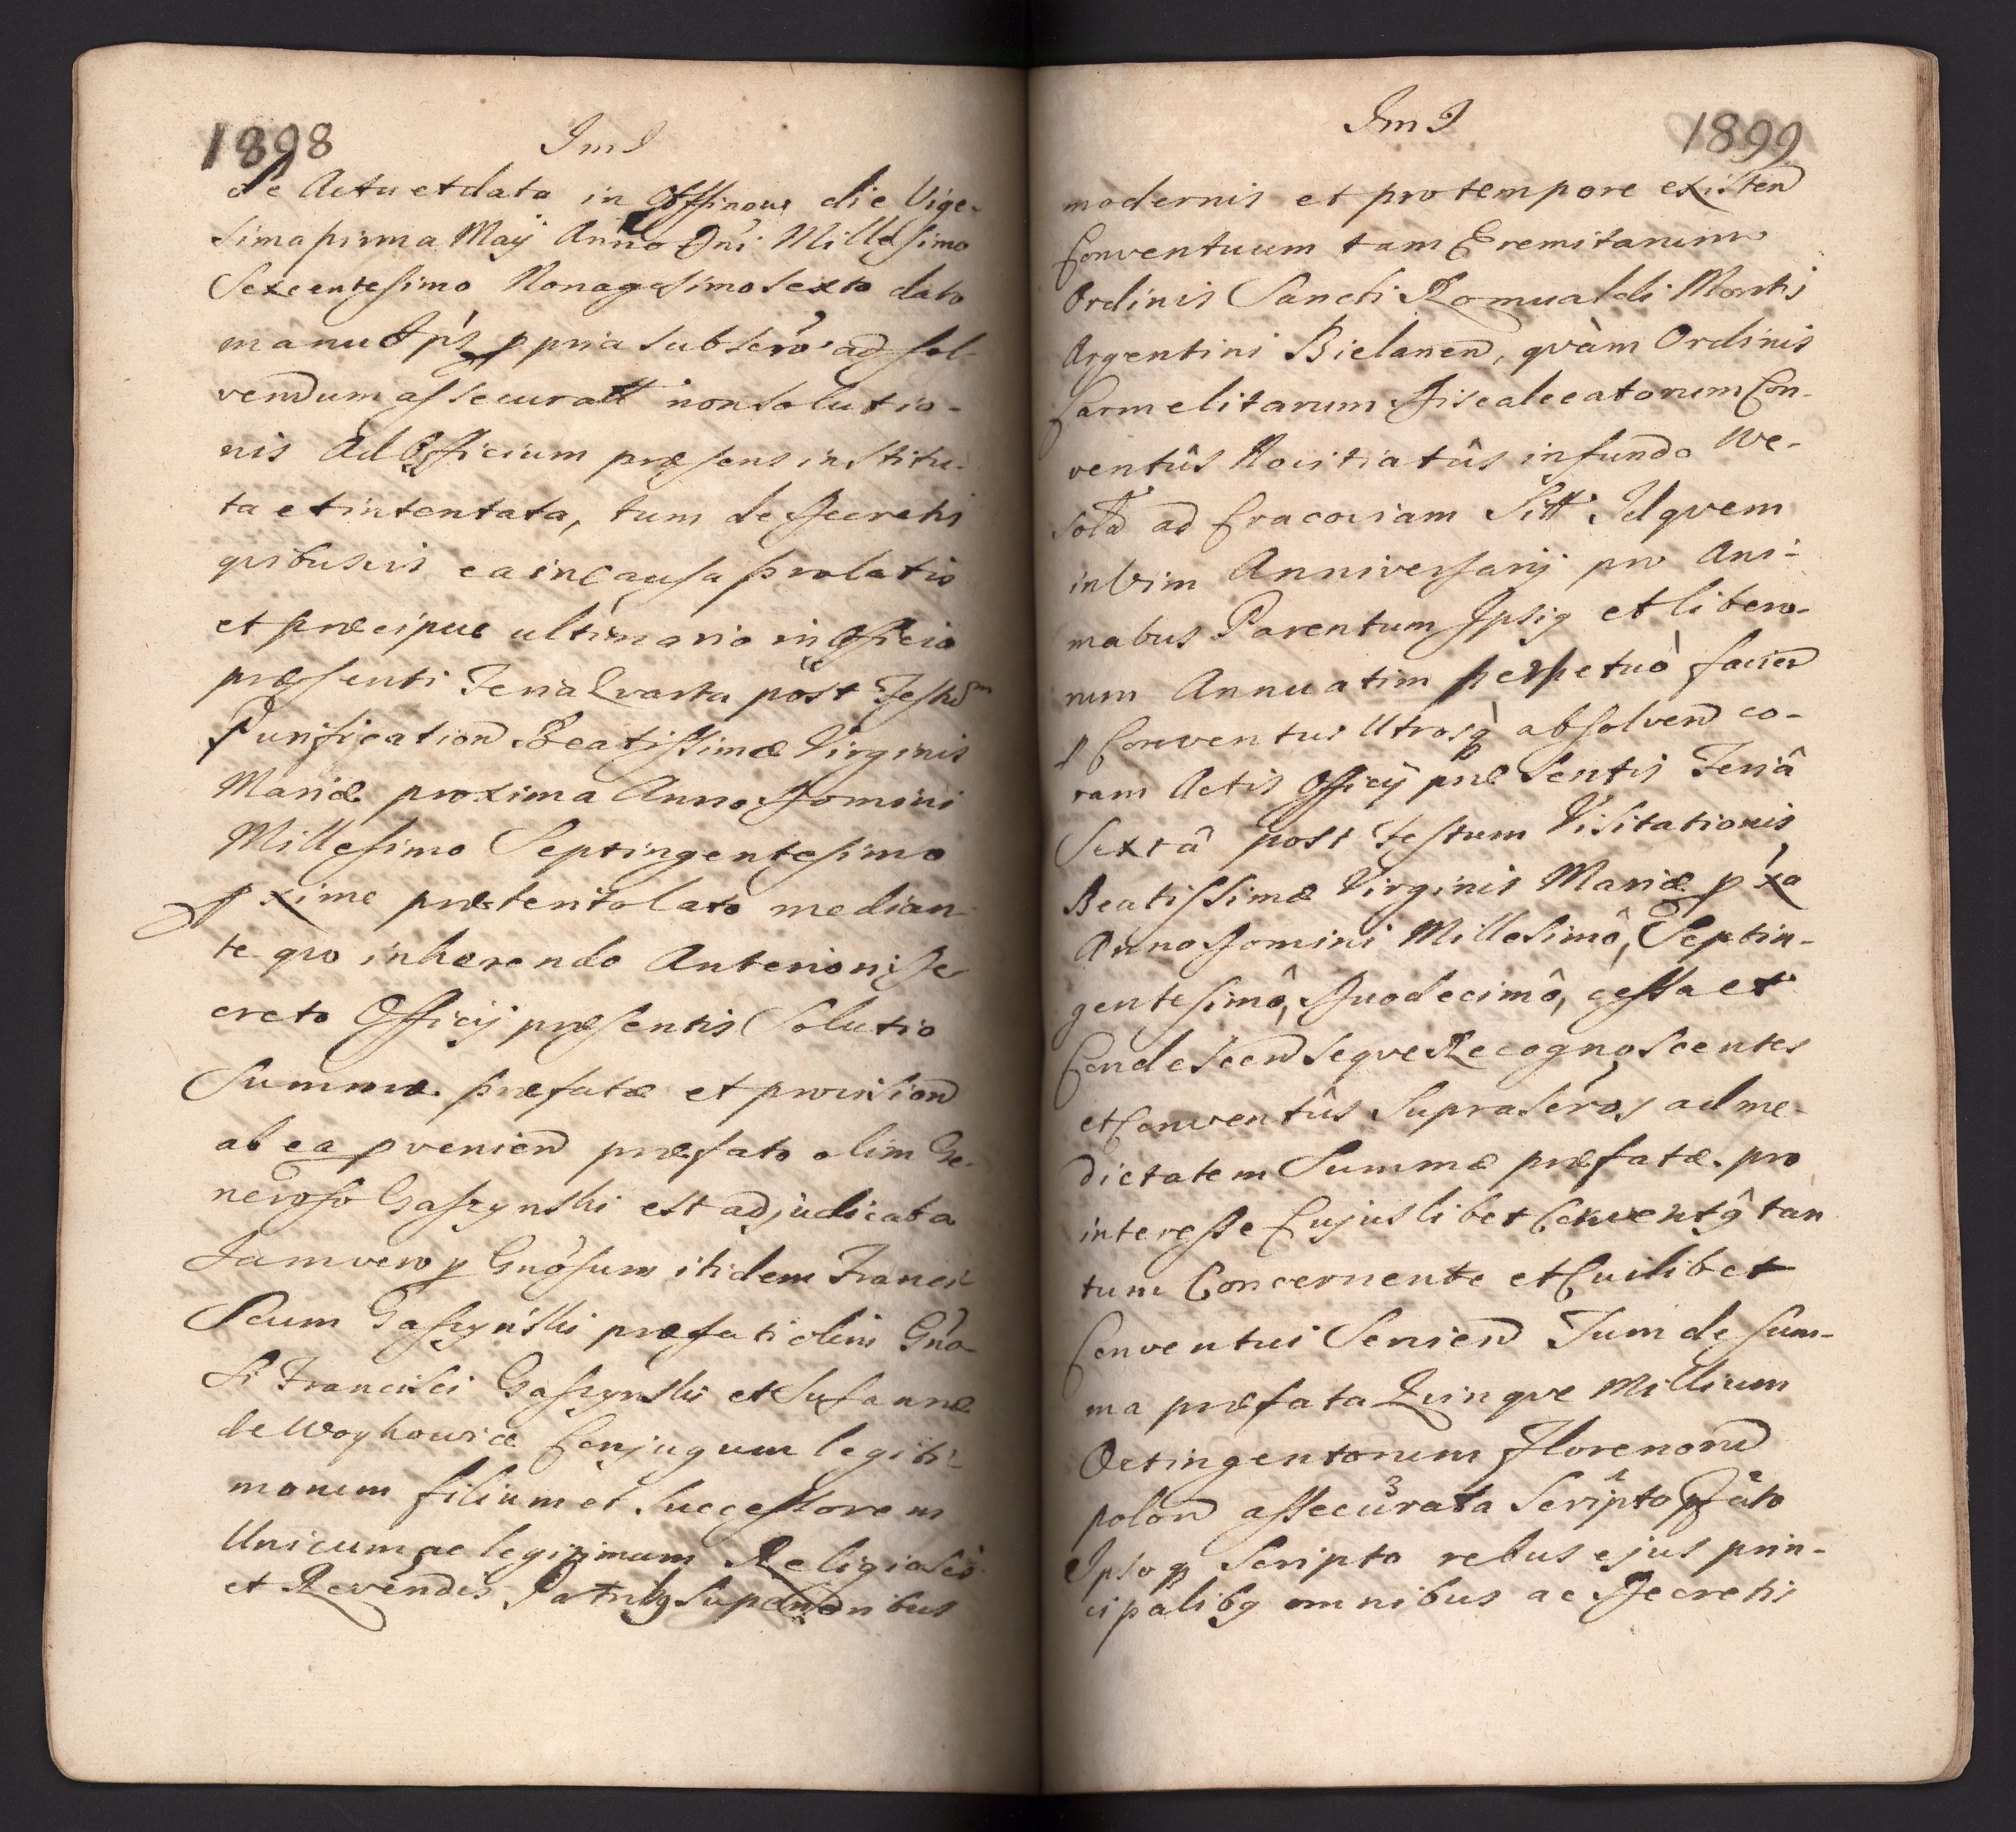 1898
JmJ
de Actu et data in Offinow die Vige-
sima prima Maÿ Anno Dni Millesimo
Sexcentesimo Nonagesimo Sexto dato
manu Ips ppria subscro ad sol-
vendum assecuratt non solutio-
nis Ad Officium præsens institu-
ta et intentata, tum de Decretis
qvibusvis ea in Causa prolatis
et præcipue ultimario in Officio
præsenti Feria Qvarta post Festum
Purification Beatissimæ Virginis
Mariæ proxima Anno Domini
Millesimo Septingentesimo
pxime præteritolato median-
te qvo inhærendo Anteriori De-
creto Officij præsentis Solutio
Summæ præfatæ et provision
ab ea pvenien præfato olim Ge-
neroso Gaszynski est adjudicata
Jam vero p Gnosum itidem Franci-
scum Gaszyński præfati olim Gno-
si Francisci Gaszynski et Susannæ
de Woykowice Conjugum legiti-
morum filium et Successorem
Unicum ac legitimum Religiosis
et Revendis Patribg Superioribus
JmJ
1899
modernis et pro tempore existen
Conventuum tam Eremitarum
Ordinis Sancti Romualdi Montis
Argentini Bielanen, qvàm Ordinis
Carmelitarum Discalceatorum Con-
ventûs Novitiatûs in fundo We-
sola ad Cracoviam Sitt Idqvem
in Vim Anniversarij pro Ani-
mabus Parentum Ipsig et libero-
rum Annuatim perpetuò facien
p Conventus Utrosq absolven co-
ram Actis Officij præsentis Feriâ
Sextâ post Festum Visitationis
Beatissimæ Virginis Mariæ pxa
Anno Domini Millesimô, Septin-
gentesimô, Duodecimô, cessa et
Condescen seqve Recognoscentes
et Conventûs Suprascros ad me-
dietatem Summæ præfatæ pro
interesse Cujuslibet Conventg tan
tum Concernente et Cuilibet
Conventui Servien Tum de Sum-
ma præfata Qvinqve Millium
Octingentorum Florenorum
polon assecurata Scripto pfato
Ipsoq Scripto rebus ejus prin-
cipalibg omnibus ac Decretis